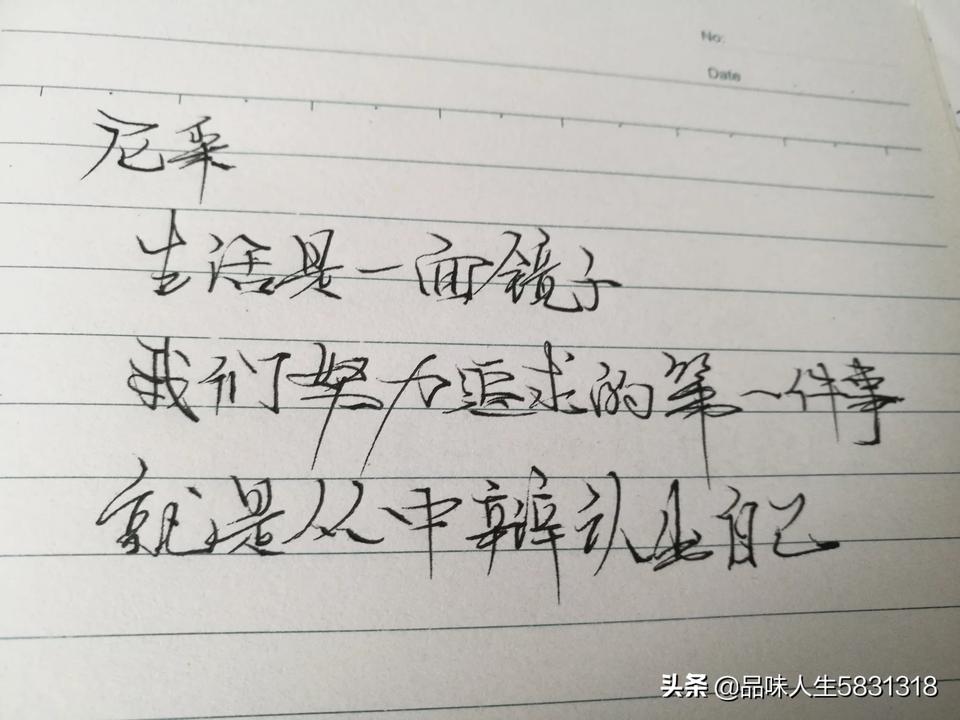 No:
Date
尼采
生活是一面镜子
我们努力追求的第一件事
就是从中辩认出自己
头条 @品味人生5831318